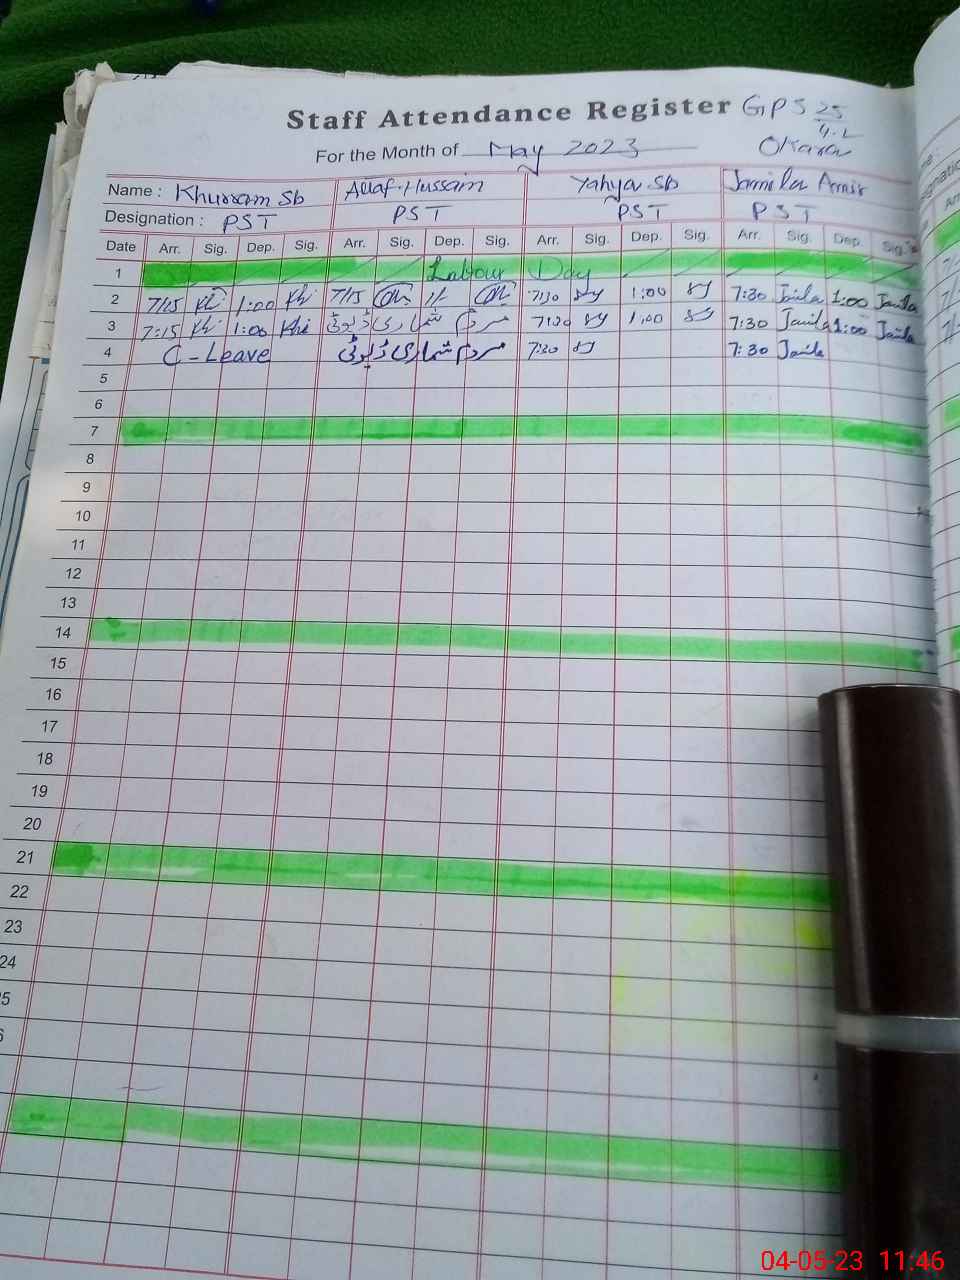 Staff Attendance Register GPS 25/4.L
Okara
For the Month of May 2023
Name : Khurram Sb Altaf Hussain Yahya Sb Jamila Amir
Designation : PST PST PST PST
Date Arr. Sig. Dep. Sig. Arr. Sig. Dep. Sig. Arr. Sig. Dep. Sig. Arr. Sig. Dep. Sig.
1 Labour Day
2 7/15 Kh 1:00 Kh 7/15 11 7:30 1:00 7:30 Jamila 1:00 Jamila
3 7:15 Kh 1:00 Kh مردم شماری ڈیوٹی 7:30 1:00 7:30 Jamila 1:00 Jamila
4 C-Leave مردم شماری ڈیوٹی 7:30 7:30 Jamila
5
6
7
8
9
10
11
12
13
14
15
16
17
18
19
20
21
22
23
24
25
6
04-05-23 11:46